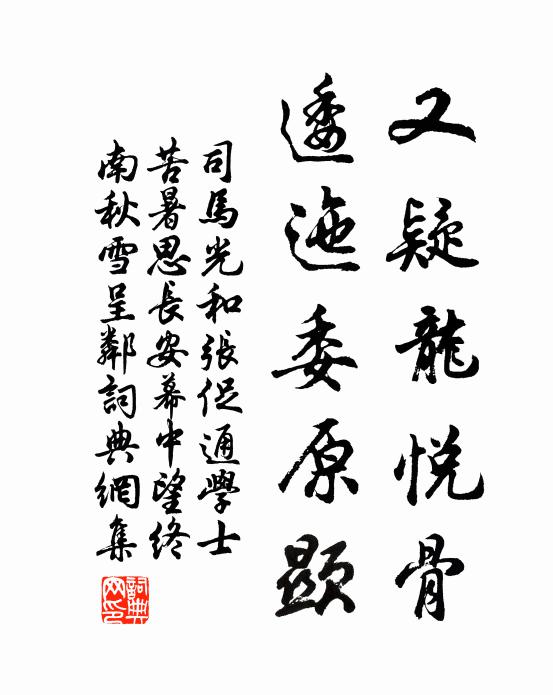 又疑龍悅骨
逶迤委原顯
司馬光和張促通學士
苦暑思長安幕中望終
南秋雪呈鄰詞典網集
詞典
网印